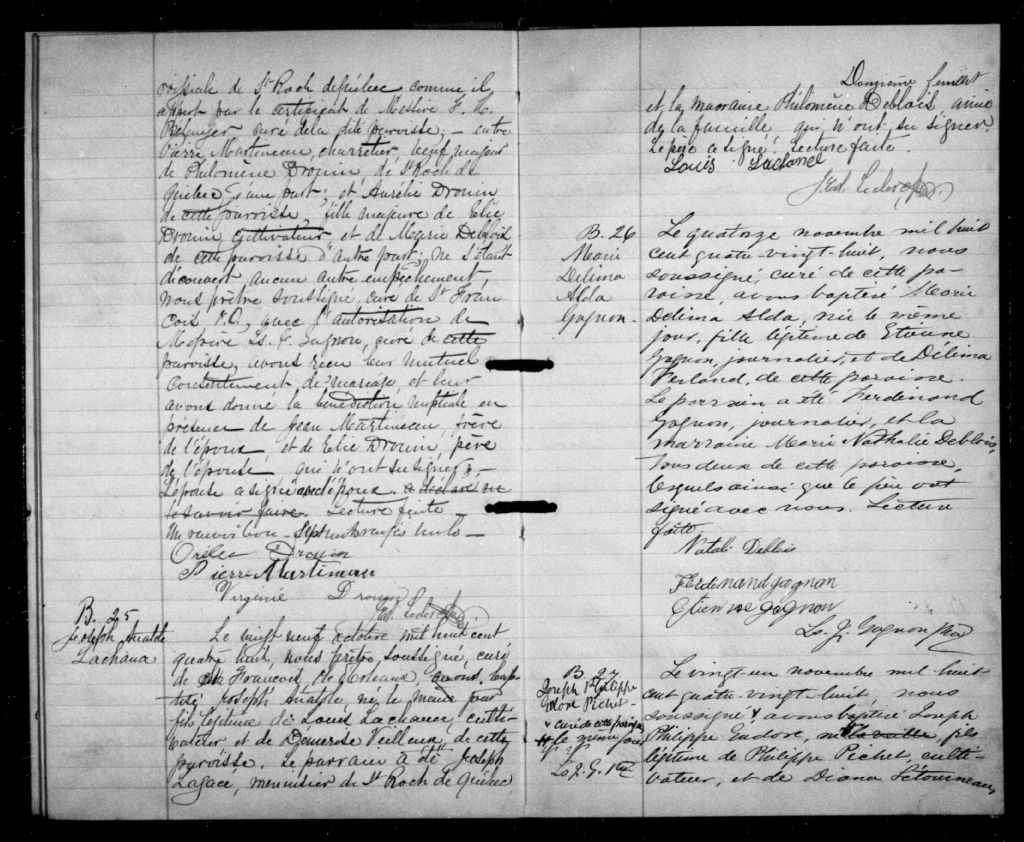 roissiale de St Roch de Québec comme il
appert par le certificat de Messire F. H.
Bélanger curé de la dite paroisse; – entre
Pierre Martineau, charretier, veuf majeur
de Philomène Drouin de St Roch de
Québec d'une part; et Aurélie Drouin
de cette paroisse, fille majeure de Elie
Drouin cultivateur et de Marie Deblois
de cette paroisse d'autre part; ne s'étant
découvert aucun autre empêchement,
nous prêtre soussigné, curé de St Fran-
cois I.O., avec l'autorisation de
Messire Ls. J. Gagnon, curé de cette
paroisse, avons reçu leur mutuel
consentement de mariage et leur
avons donné la bénédiction nuptiale en
présence de Jean Martineau, frère
de l'époux, et de Elie Drouin, père
de l'épouse qui n'ont su signer. –
L'épouse a signé avec l'époux. a déclaré ne
le savoir faire. Lecture faite –
Un renvoi bon – Sept mots rayés nuls –
Drouin
Pierre Martineau
Virginie Drouin
Leclerc ptre
B. 25
Joseph Anaclde
Lachance
Le vingt neuf octobre mil huit cent
quatre huit, nous prêtre soussigné, curé
de St Francois, Ile d'Orléans, avons bap-
tisé Joseph né le même jour
fils légitime de Louis Lachance culti-
vateur et de Démerise Veilleux de cette
paroisse. Le parrain a été Joseph
Lagacé, menuisier de St Roch de Québec
Douzième feuillet
et la marraine Philomène Deblois, amie
de la famille qui n'ont su signer.
Le père a signé. Lecture faite.
Louis Lachance
Leclerc ptre.
B. 26
Marie
Delima
Alda
Gagnon.
Le quatorze novembre mil huit
cent quatre-vingt-huit, nous
soussigné, curé de cette pa-
roisse, avons baptisé Marie
Delima Alda, née le même
jour, fille légitime de Etienne
Gagnon, journalier, et de Délima
Verland, de cette paroisse.
Le parrain a été Ferdinand
Gagnon, journalier, et la
marraine Marie Nathalie Deblois,
tous deux de cette paroisse,
lesquels ainsi que le père ont
signé avec nous. Lecture
faite.
Natali Deblois
Ferdinand gagnon
Etienne gagnon
Ls. J. Gagnon Ptre
B. 27
Joseph Philippe
Eudore Pichet –
x curé de cette paroisse
# le même jour
Ls J. G. Ptre
Le vingt-un novembre mil huit
cent quatre-vingt-huit, nous
soussigné x avons baptisé Joseph
Philippe Eudore, né la veille, fils
légitime de Philippe Pichet, culti-
vateur, et de Diana Létourneau,